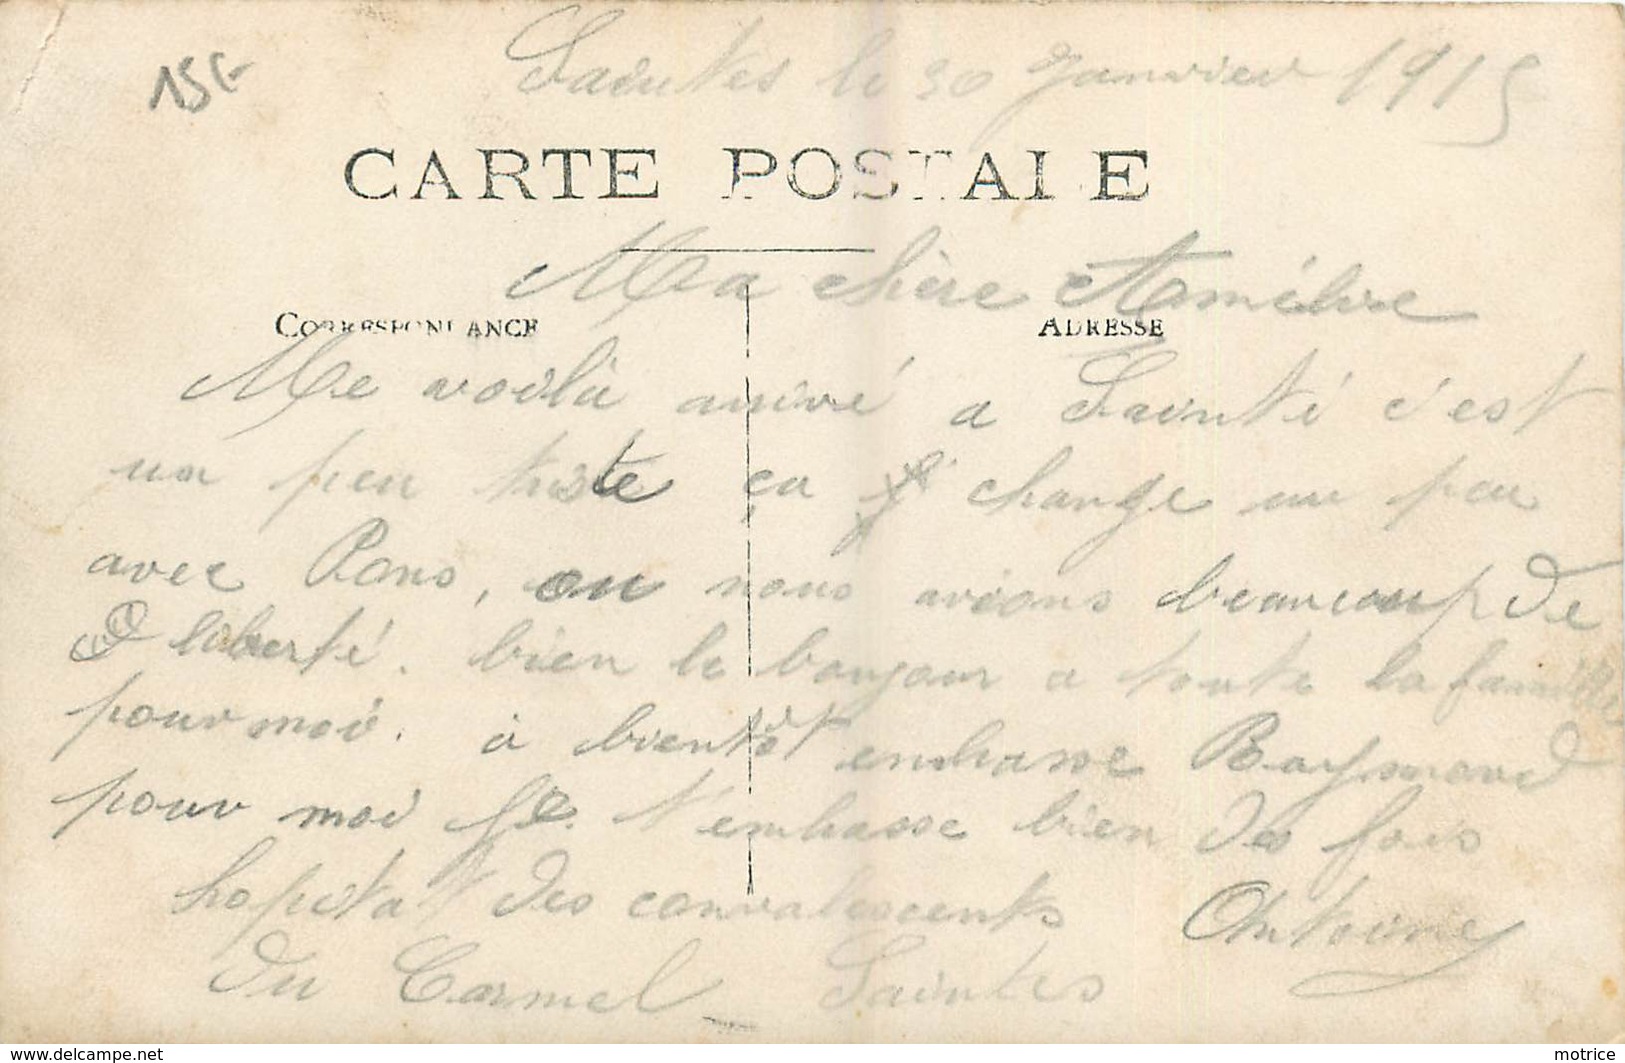 15€
Saintes le 30 Janvier 1915
CARTE POSTALE
Ma chère
CORRESPONDANCE
ADRESSE
Me voilà arrivé a Sainté c'est
un peu triste ça change un peu
avec Pons, ou nous avions beaucoup de
liberté. bien le bonjour a toute la famille
pour moi. à bientôt embrasse Raymond
pour moi Je t'embrasse bien des fois
hopital des convalescents Antoine
du Carmel _ Saintes
https://www.delcampe.net
motrice